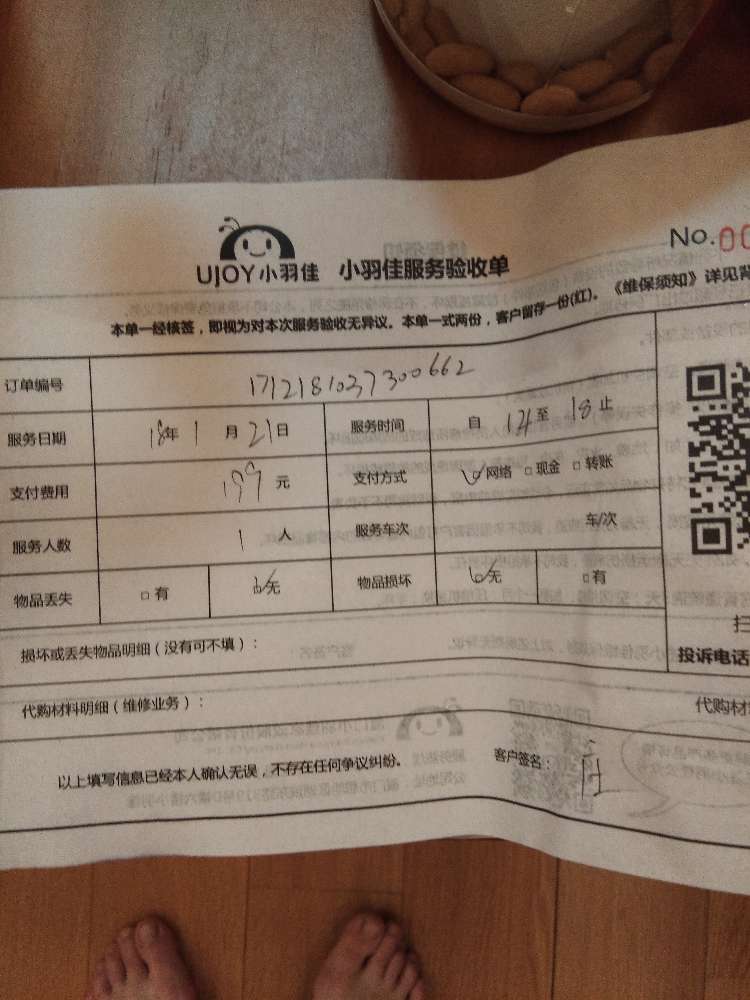 No.00
UJOY小羽佳 小羽佳服务验收单
本单一经核签，即视为对本次服务验收无异议。本单一式两份，客户留存一份(红)。《维保须知》详见背
订单编号 1712181037300662
服务日期 18年1月21日 服务时间 自 14 至 18 止
支付费用 199元 支付方式 网络 □现金 □转账
服务人数 1人 服务车次 车/次
物品丢失 □有 无 物品损坏 无 □有
扫
损坏或丢失物品明细（没有可不填）： 投诉电话
代购材料明细（维修业务）： 代购材
以上填写信息已经本人确认无误，不存在任何争议纠纷。 客户签名：